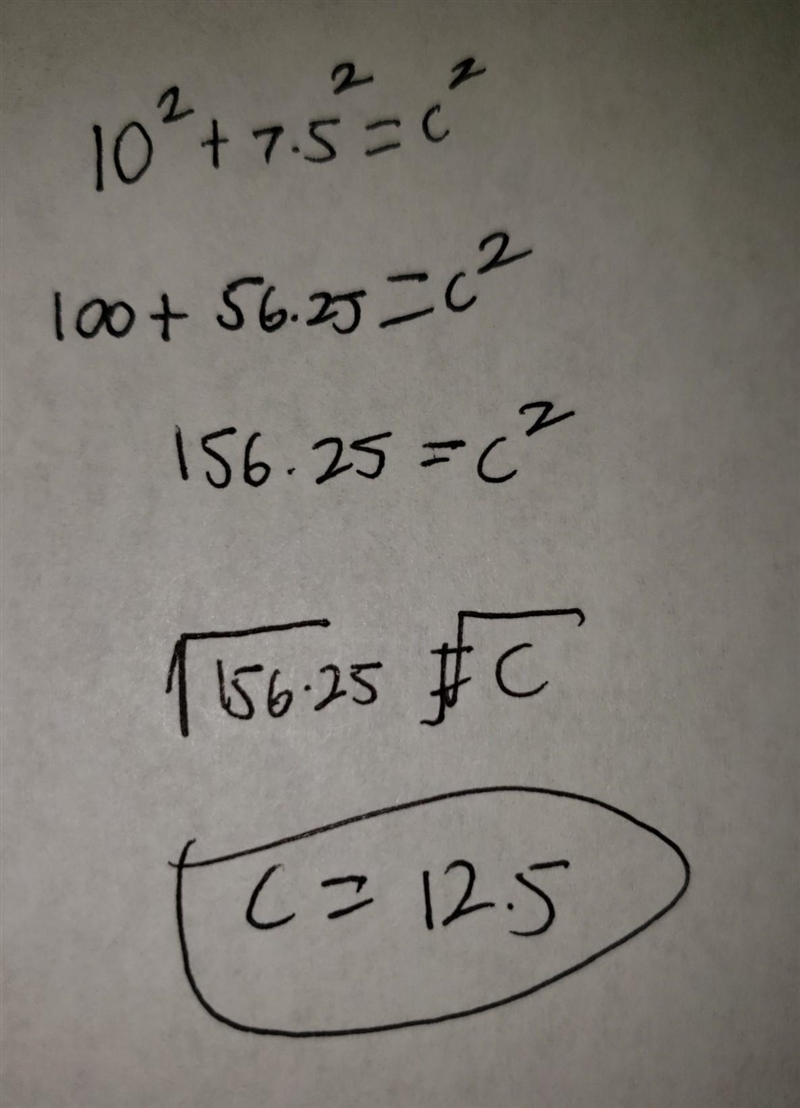 10² + 7.5² = c²
100 + 56.25 = c²
156.25 = c²
√156.25 = √C
C = 12.5